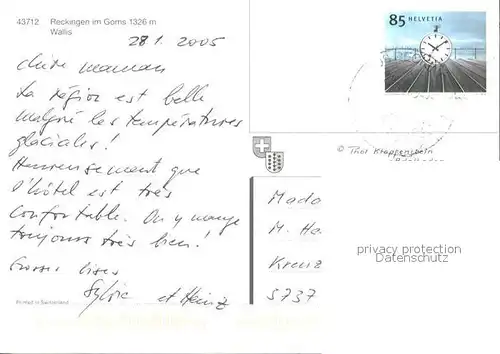 43712 Reckingen im Goms 1326 m
Wallis
28.1.2005
chère maman
La région est belle
malgré les températures
glaciales!
Heureusement que
l'hôtel est très
confortable. On y mange
toujours très bien!
Grosses bises
Sylvie et Heinz
Printed in Switzerland
85 HELVETIA
© Photo Klopfenstein
Adelboden
Mada
M. Ha
Kreuz
5737
privacy protection
Datenschutz